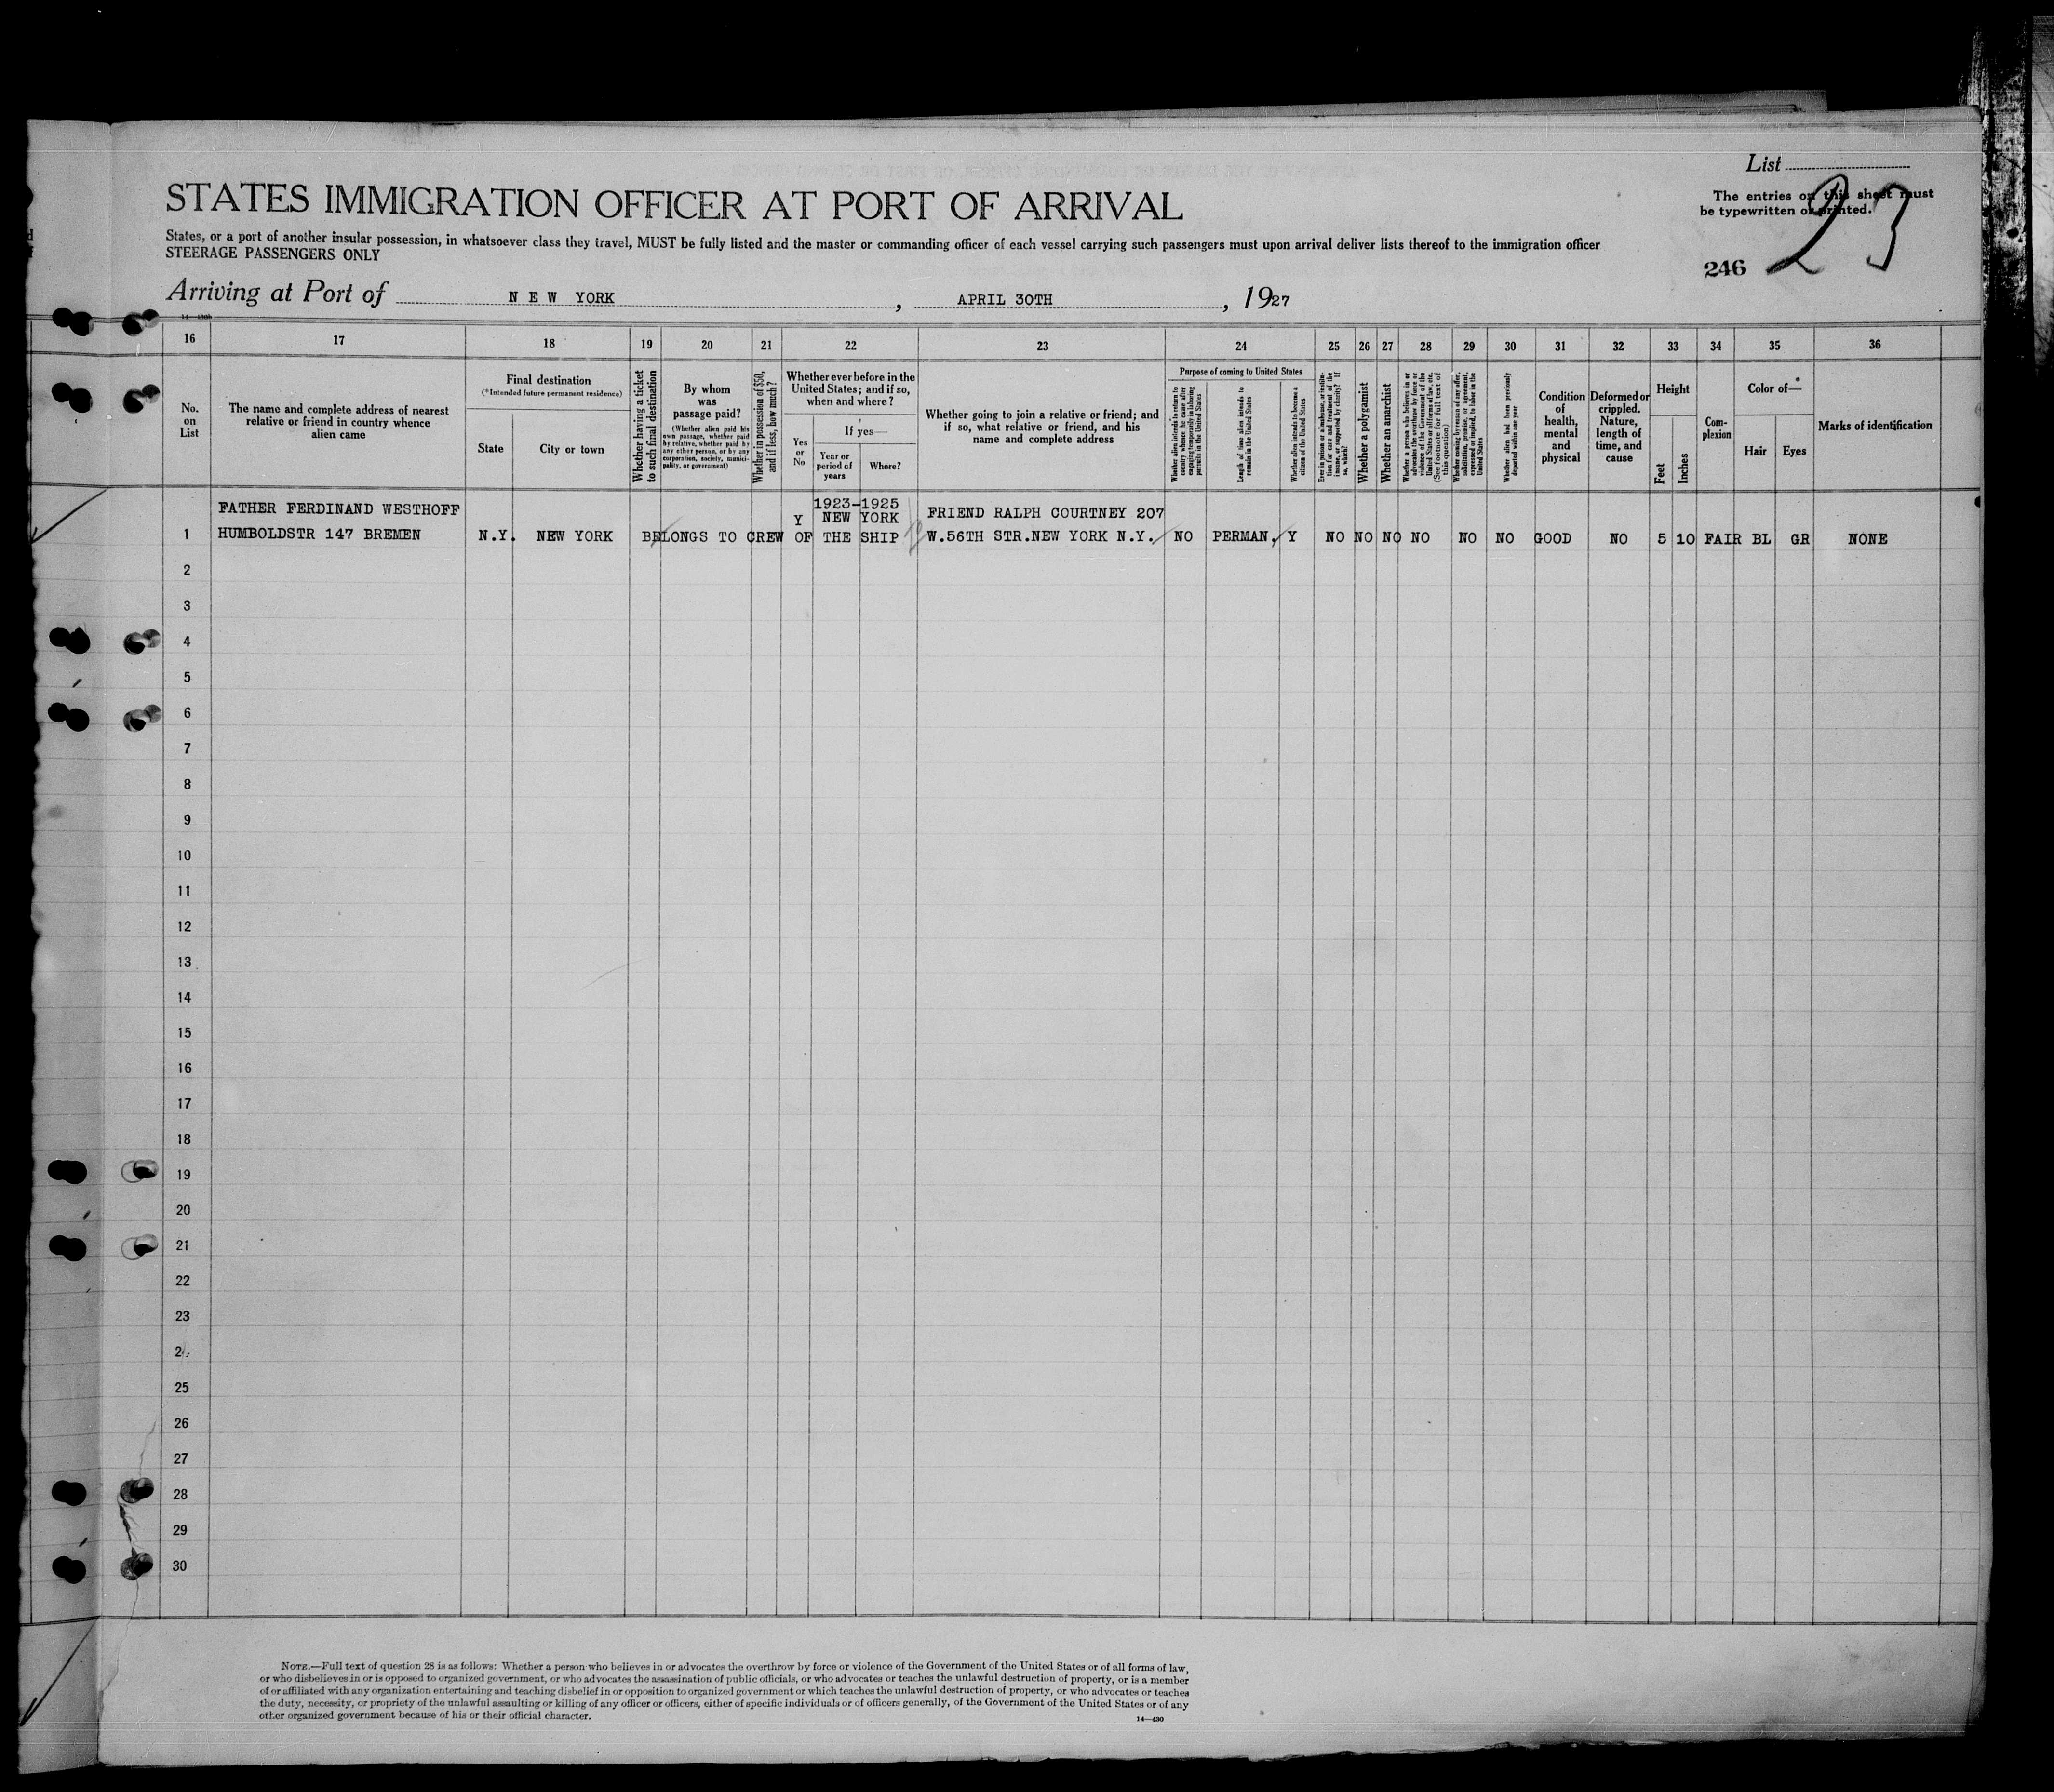 List
The entries on this sheet must
be typewritten or printed.
23
246
STATES IMMIGRATION OFFICER AT PORT OF ARRIVAL
States, or a port of another insular possession, in whatsoever class they travel, MUST be fully listed and the master or commanding officer of each vessel carrying such passengers must upon arrival deliver lists thereof to the immigration officer
STEERAGE PASSENGERS ONLY
Arriving at Port of NEW YORK, APRIL 30TH, 1927
16 17 18 19 20 21 22 23 24 25 26 27 28 29 30 31 32 33 34 35 36
No.
on
List
The name and complete address of nearest
relative or friend in country whence
alien came
Final destination
(*Intended future permanent residence)
State
City or town
Whether having a ticket
to such final destination
By whom
was
passage paid?
(Whether alien paid his
own passage, whether paid
by relative, whether paid by
any other person, or by any
corporation, society, munici-
pality, or government)
Whether in possession of $50,
and if less, how much?
Whether ever before in the
United States; and if so,
when and where?
Yes
or
No
If yes—
Year or
period of
years
Where?
Whether going to join a relative or friend; and
if so, what relative or friend, and his
name and complete address
Purpose of coming to United States
Whether alien intends to return to
country whence he came after
engaging temporarily in laboring
pursuits in the United States
Length of time alien intends to
remain in the United States
Whether alien intends to become a
citizen of the United States
Ever in prison or almshouse, or institu-
tion for care and treatment of the
insane, or supported by charity? If
so, which?
Whether a polygamist
Whether an anarchist
Whether a person who believes in or
advocates the overthrow by force or
violence of the Government of the
United States or all forms of law, etc.
(See footnote for full text of
this question)
Whether coming by reason of any offer,
solicitation, promise, or agreement,
expressed or implied, to labor in the
United States
Whether alien had been previously
deported within one year
Condition
of
health,
mental
and
physical
Deformed or
crippled.
Nature,
length of
time, and
cause
Height
Feet
Inches
Com-
plexion
Color of—
Hair
Eyes
Marks of identification
FATHER FERDINAND WESTHOFF 1923-1925
Y NEW YORK FRIEND RALPH COURTNEY 207
1 HUMBOLDSTR 147 BREMEN N.Y. NEW YORK BELONGS TO CREW OF THE SHIP W.56TH STR.NEW YORK N.Y. NO PERMAN. Y NO NO NO NO NO NO GOOD NO 5 10 FAIR BL GR NONE
2
3
4
5
6
7
8
9
10
11
12
13
14
15
16
17
18
19
20
21
22
23
24
25
26
27
28
29
30
NOTE.—Full text of question 28 is as follows: Whether a person who believes in or advocates the overthrow by force or violence of the Government of the United States or of all forms of law,
or who disbelieves in or is opposed to organized government, or who advocates the assassination of public officials, or who advocates or teaches the unlawful destruction of property, or is a member
of or affiliated with any organization entertaining and teaching disbelief in or opposition to organized government or which teaches the unlawful destruction of property, or who advocates or teaches
the duty, necessity, or propriety of the unlawful assaulting or killing of any officer or officers, either of specific individuals or of officers generally, of the Government of the United States or of any
other organized government because of his or their official character.
14—430